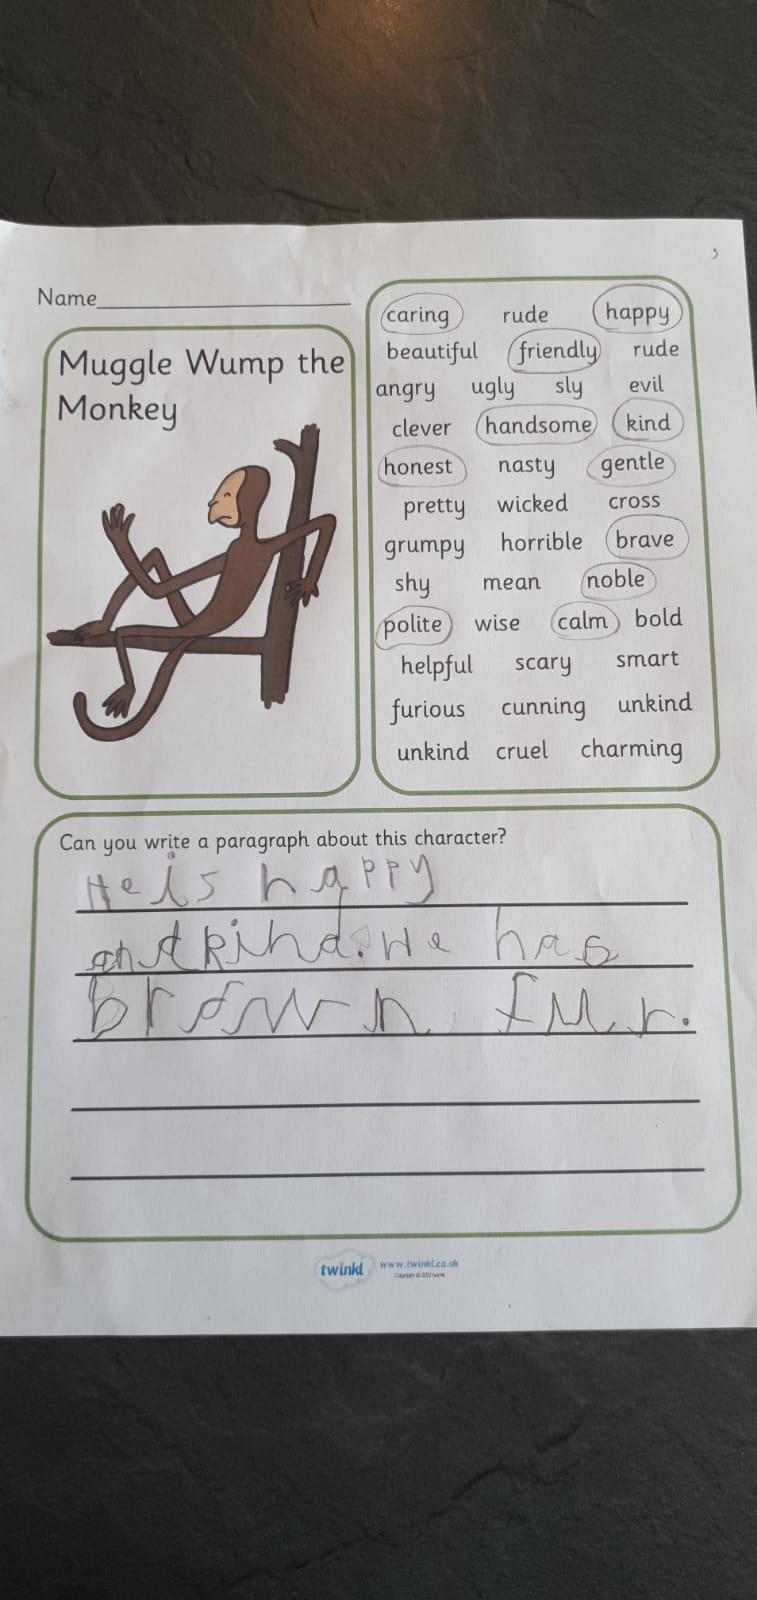 Name
Muggle Wump the
Monkey
caring rude happy
beautiful friendly rude
angry ugly sly evil
clever handsome kind
honest nasty gentle
pretty wicked cross
grumpy horrible brave
shy mean noble
polite wise calm bold
helpful scary smart
furious cunning unkind
unkind cruel charming
Can you write a paragraph about this character?
He is happy
and kind. He has
brown fur.
twinkl www.twinkl.co.uk